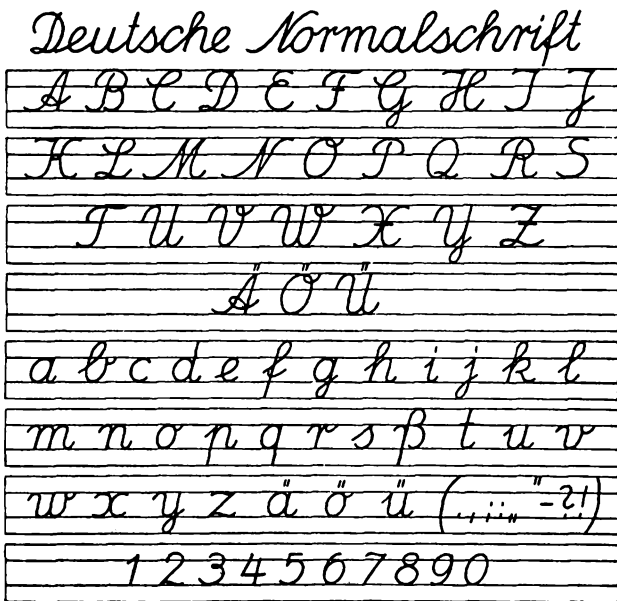 Deutsche Normalschrift
A B C D E F G H I J
K L M N O P Q R S
T U V W X Y Z
Ä Ö Ü
a b c d e f g h i j k l
m n o p q r s ß t u v
w x y z ä ö ü (.,;:„ “-?!)
1 2 3 4 5 6 7 8 9 0